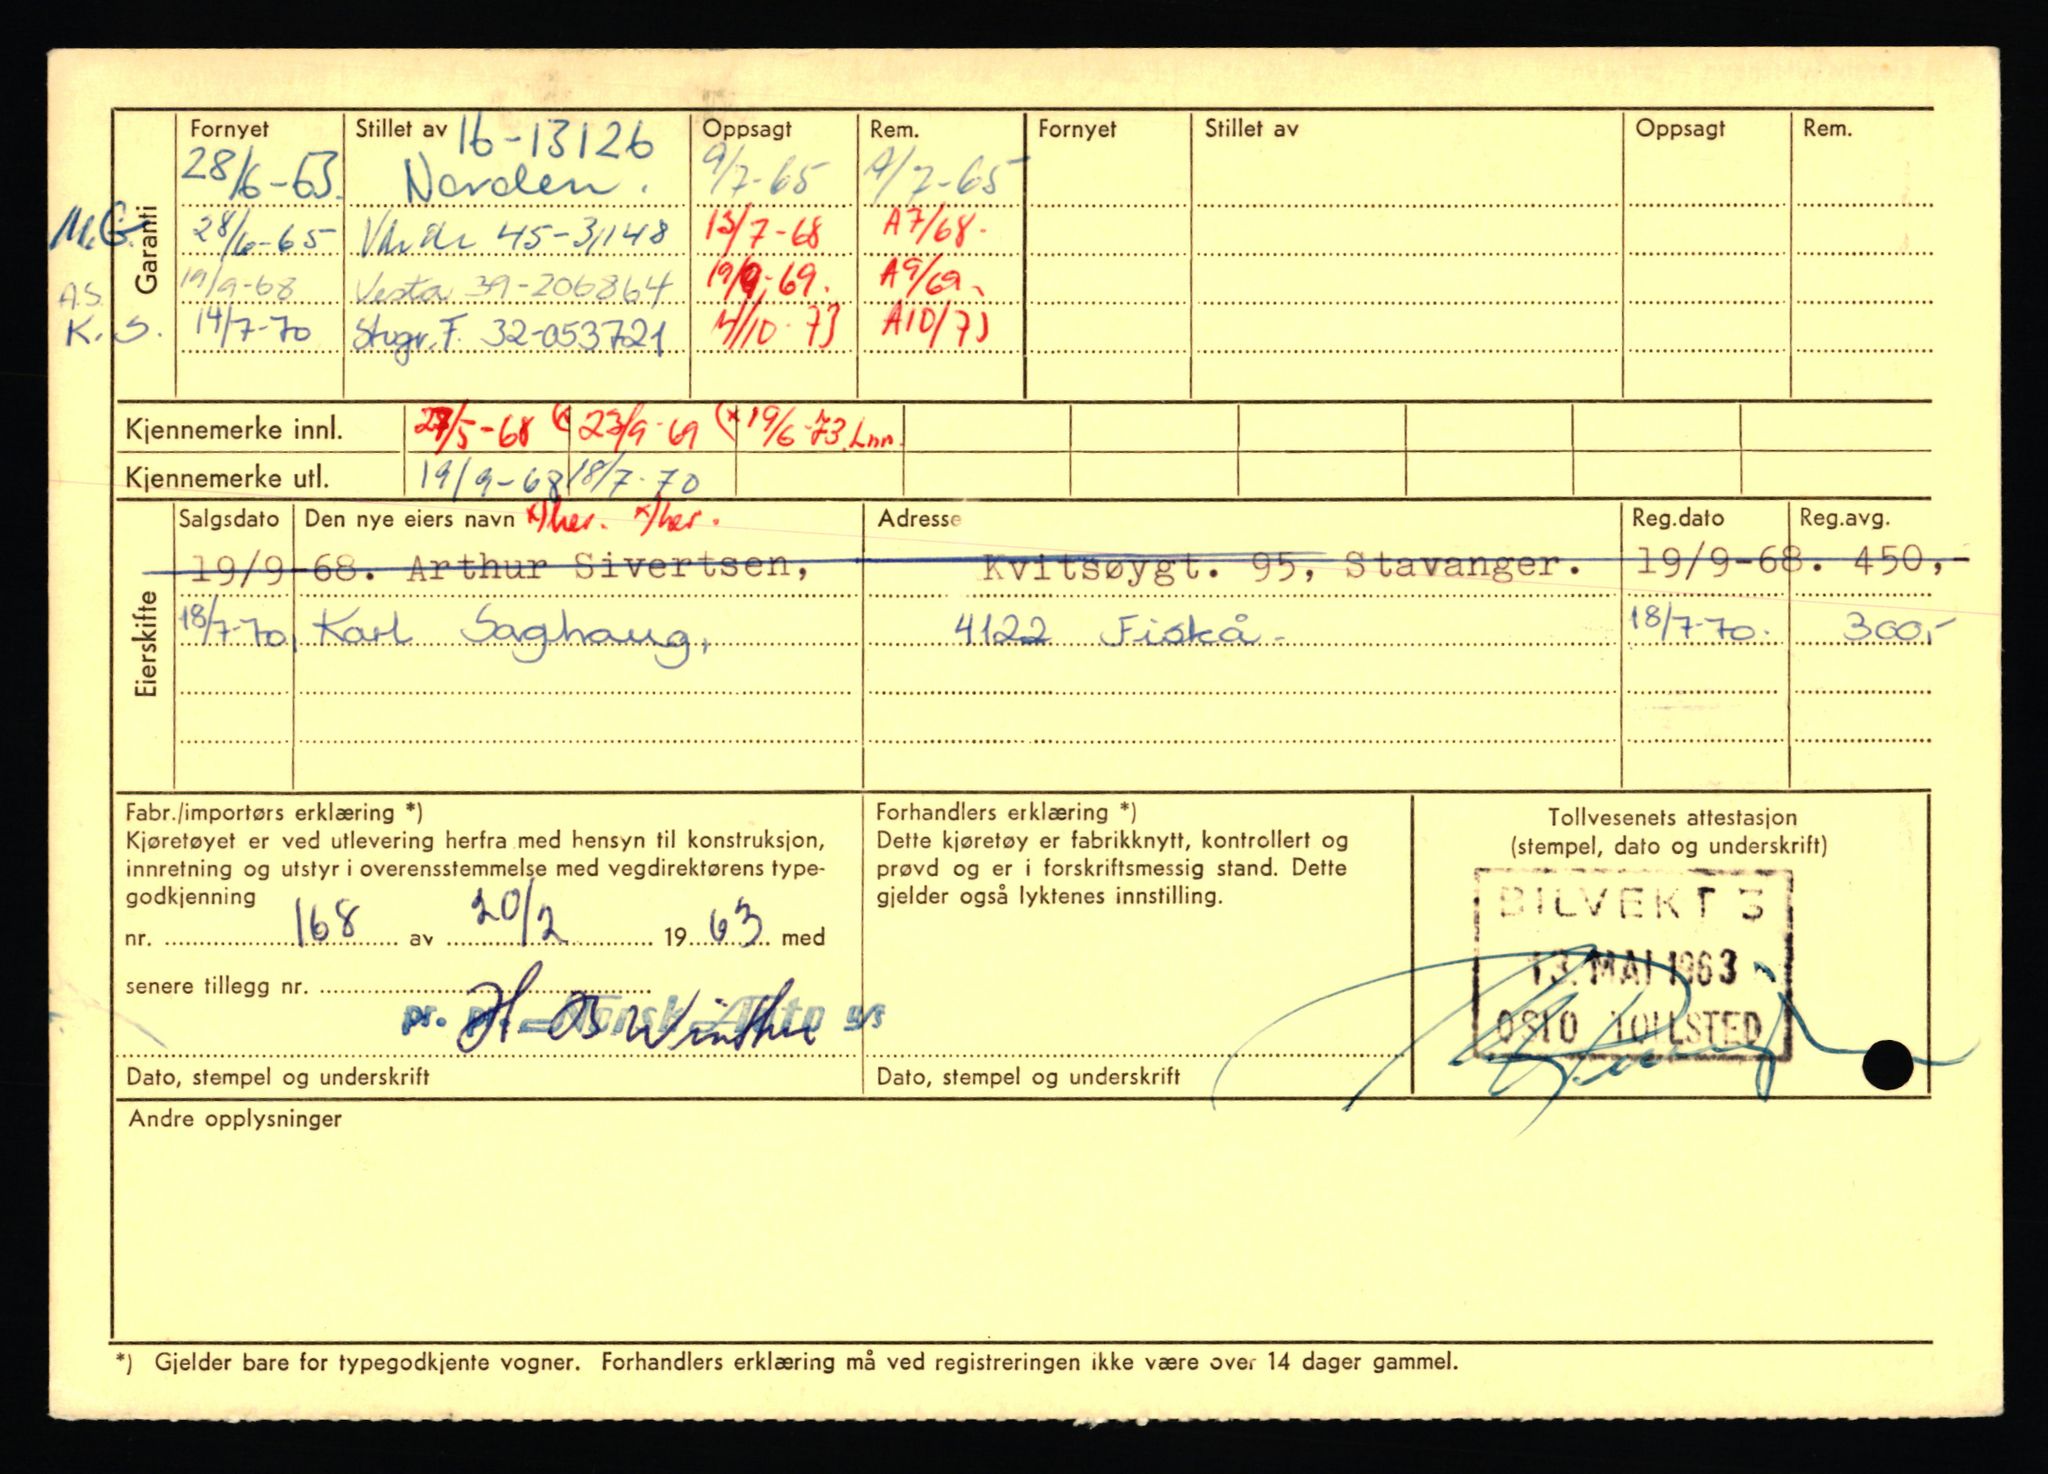 Garanti
Fornyet Stillet av Oppsagt Rem. Fornyet Stillet av Oppsagt Rem.
16-13126
28/6-63. Norden. 9/7-65 9/7-65
M.G. 28/6-65 45-3,148 13/7-68 A7/68.
A.S. 19/9-68 Vesta 39-206864 19/9-69. A9/69.
K.S. 14/7-70 Stvgr. F. 32-053721 /10-73 A10/73
Kjennemerke innl. /5-68 (x 23/9-69 (x 19/6-73. Lnn.
Kjennemerke utl. 19/9-68 18/7-70
Eierskifte
Salgsdato Den nye eiers navn x)her. x)her. Adresse Reg.dato Reg.avg.
19/9-68. Arthur Sivertsen, Kvitsøygt. 95, Stavanger. 19/9-68. 450,-
18/7-70 Karl Saghaug, 4122 Fiskå. 18/7-70. 300,-
Fabr./importørs erklæring *)
Kjøretøyet er ved utlevering herfra med hensyn til konstruksjon,
innretning og utstyr i overensstemmelse med vegdirektørens type-
godkjenning
nr. 168 av 20/2 1963 med
senere tillegg nr.
pr. pr. Norsk Auto a/s
Winther
Dato, stempel og underskrift
Forhandlers erklæring *)
Dette kjøretøy er fabrikknytt, kontrollert og
prøvd og er i forskriftsmessig stand. Dette
gjelder også lyktenes innstilling.
Dato, stempel og underskrift
Tollvesenets attestasjon
(stempel, dato og underskrift)
BILVEKT 3
13. MAI 1963
OSLO TOLLSTED
Andre opplysninger
*) Gjelder bare for typegodkjente vogner. Forhandlers erklæring må ved registreringen ikke være over 14 dager gammel.